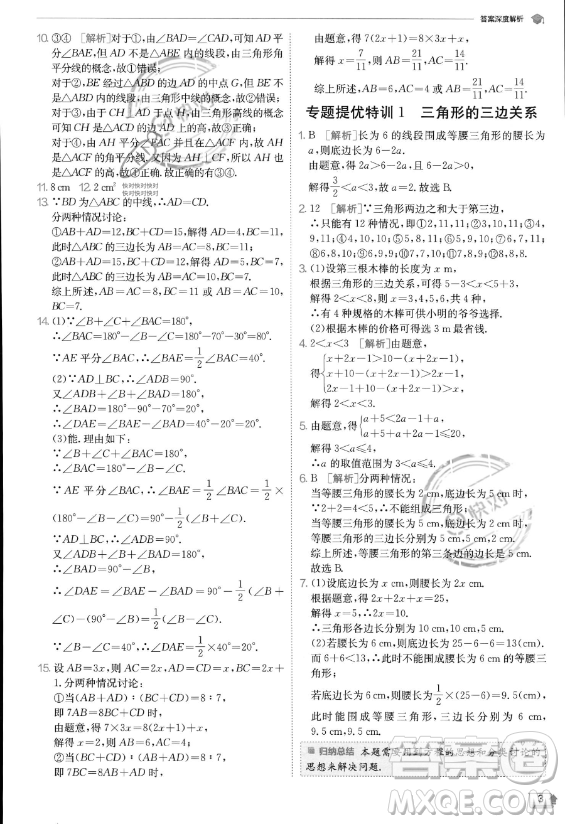 答案深度解析
10. ③④ [解析]对于①,由∠BAD=∠CAD,可知 AD
平分∠BAE,但 AD 不是△ABE 内的线段,由三角形角
平分线的概念,故①错误;
对于②,BE 经过△ABD 的边 AD 的中点 G,但 BE 不
是△ABD 内的线段,由三角形中线的概念,故②错误;
对于③,由于 CH⊥AD 于点 H,由三角形高线的概念
可知 CH 是△ACD 的边 AD 上的高,故③正确;
对于④,由 AH 平分∠FAC 并且在△ACF 内,故 AH
是△ACF 的角平分线.又因为 AH⊥CF,所以 AH 也
是△ACF 的高,故④正确.
11. 8 cm 12. 2 cm²
13. ∵BD 为△ABC 的中线,∴AD=CD.
分两种情况讨论:
①AB+AD=12,BC+CD=15,解得 AD=4,BC=11,
此时△ABC 的三边长为 AB=AC=8,BC=11;
②BC+CD=12,AB+AD=15,解得 AD=5,BC=7,
此时△ABC 的三边长为 AB=AC=10,BC=7.
综上所述,AC=8,BC=11 或 AC=10,
BC=7.
14. (1)∵∠B+∠C+∠BAC=180°,
∴∠BAC=180°-∠B-∠C=180°-70°-30°=80°.
∵AE 平分∠BAC,∴∠BAE=1/2∠BAC=40°.
(2)∵AD⊥BC,∴∠ADB=90°.
又∠ADB+∠B+∠BAD=180°,
∴∠BAD=180°-∠ADB-∠B=180°-90°-70°=20°,
∴∠DAE=∠BAE-∠BAD=40°-20°=20°.
(3)能.理由如下:
∵∠B+∠C+∠BAC=180°,
∴∠BAC=180°-∠B-∠C.
∵AE 平分∠BAC,∴∠BAE=1/2∠BAC=1/2×
(180°-∠B-∠C)=90°-1/2(∠B+∠C).
∵AD⊥BC,∴∠ADB=90°.
又∠ADB+∠B+∠BAD=180°,
∴∠BAD=90°-∠B,
∴∠DAE=∠BAE-∠BAD=90°-1/2(∠B+
∠C)-(90°-∠B)=1/2(∠B-∠C).
∵∠B-∠C=40°,∴∠DAE=1/2×40°=20°.
15. 设 AB=3x,则 AC=2x,AD=CD=x,BC=2x+
1.分两种情况讨论:
①当(AB+AD):(BC+CD)=8:7,
即 7(AB+AD)=8(BC+CD)时,
由题意,得 7(3x+x)=8(2x+1+x),
解得 x=2,则 AB=6,AC=4;
②当(BC+CD):(AB+AD)=8:7,
即 7(BC+CD)=8(AB+AD)时,
由题意,得 7(2x+1+x)=8×3x+x,
解得 x=7/11,则 AB=21/11,AC=14/11.
综上所述,AB=6,AC=4 或 AB=21/11,AC=14/11.
专题提优特训 1 三角形的三边关系
1. B [解析]长为 6 的线段围成等腰三角形的腰长为
a,则底边长为 6-2a.
由题意,得 2a>6-2a,且 6-2a>0,
解得3/2<a<3,故选 B.
2. 12 [解析]∵三角形两边之和大于第三边,
∴只能有 12 种情况,即①2,11,11;②3,10,11;③4,
9,11;④4,10,10;⑤5,8,11;⑥5,9,10;⑦6,7,11;
⑧6,8,10;⑨6,9,9;⑩7,7,10;⑪7,8,9;⑫8,8,8.
3. (1)设第三根木棒的长度为 x m,
根据三角形的三边关系,得 5-3<x<5+3,
解得 2<x<8,则 x=3,4,5,6,7,共 5 种.
∴有 4 种规格的木棒可供小明的爷爷选择.
(2)根据木棒的价格可得选 3 m 最省钱.
4. 2<x<3 [解析]由题意,
得{x+2x-1>10-(x-2),
x+10-(x-2)>2x-1,
2x-1+10-(x-2)>x,
解得 2<x<3.
5. 由题意,得{a+5<2a-1+a,
a+5+a+2a-1≤20,
解得 3<a≤4.
∴a 的取值范围为 3<a≤4.
6. B [解析]分两种情况:
当等腰三角形的腰长为 2 cm,底边长为 5 cm 时,
∵2+2=4<5,∴不能组成三角形;
当等腰三角形的腰长为 5 cm,底边长为 2 cm 时,
综上所述,等腰三角形的第三条边的边长是 5 cm.
故选 B.
7. (1)设底边长为 x cm,则腰长为 2x cm.
根据题意,得 2x+2x+x=25,
解得 x=5,∴2x=10.
∴三角形各边长分别为 10 cm,10 cm,5 cm.
(2)若腰长为 6 cm,则底边长为 25-6-6=13(cm).
而 6+6<13,故不能围成腰长为 6 cm 的等腰三
角形;
若底边长为 6 cm,则腰长为1/2×(25-6)=9.5(cm),
此时能围成等腰三角形,三边长分别为 6 cm、
9.5 cm、9.5 cm.
归纳总结 本题需要用到方程的思想和分类讨论的
思想来解决问题.
3